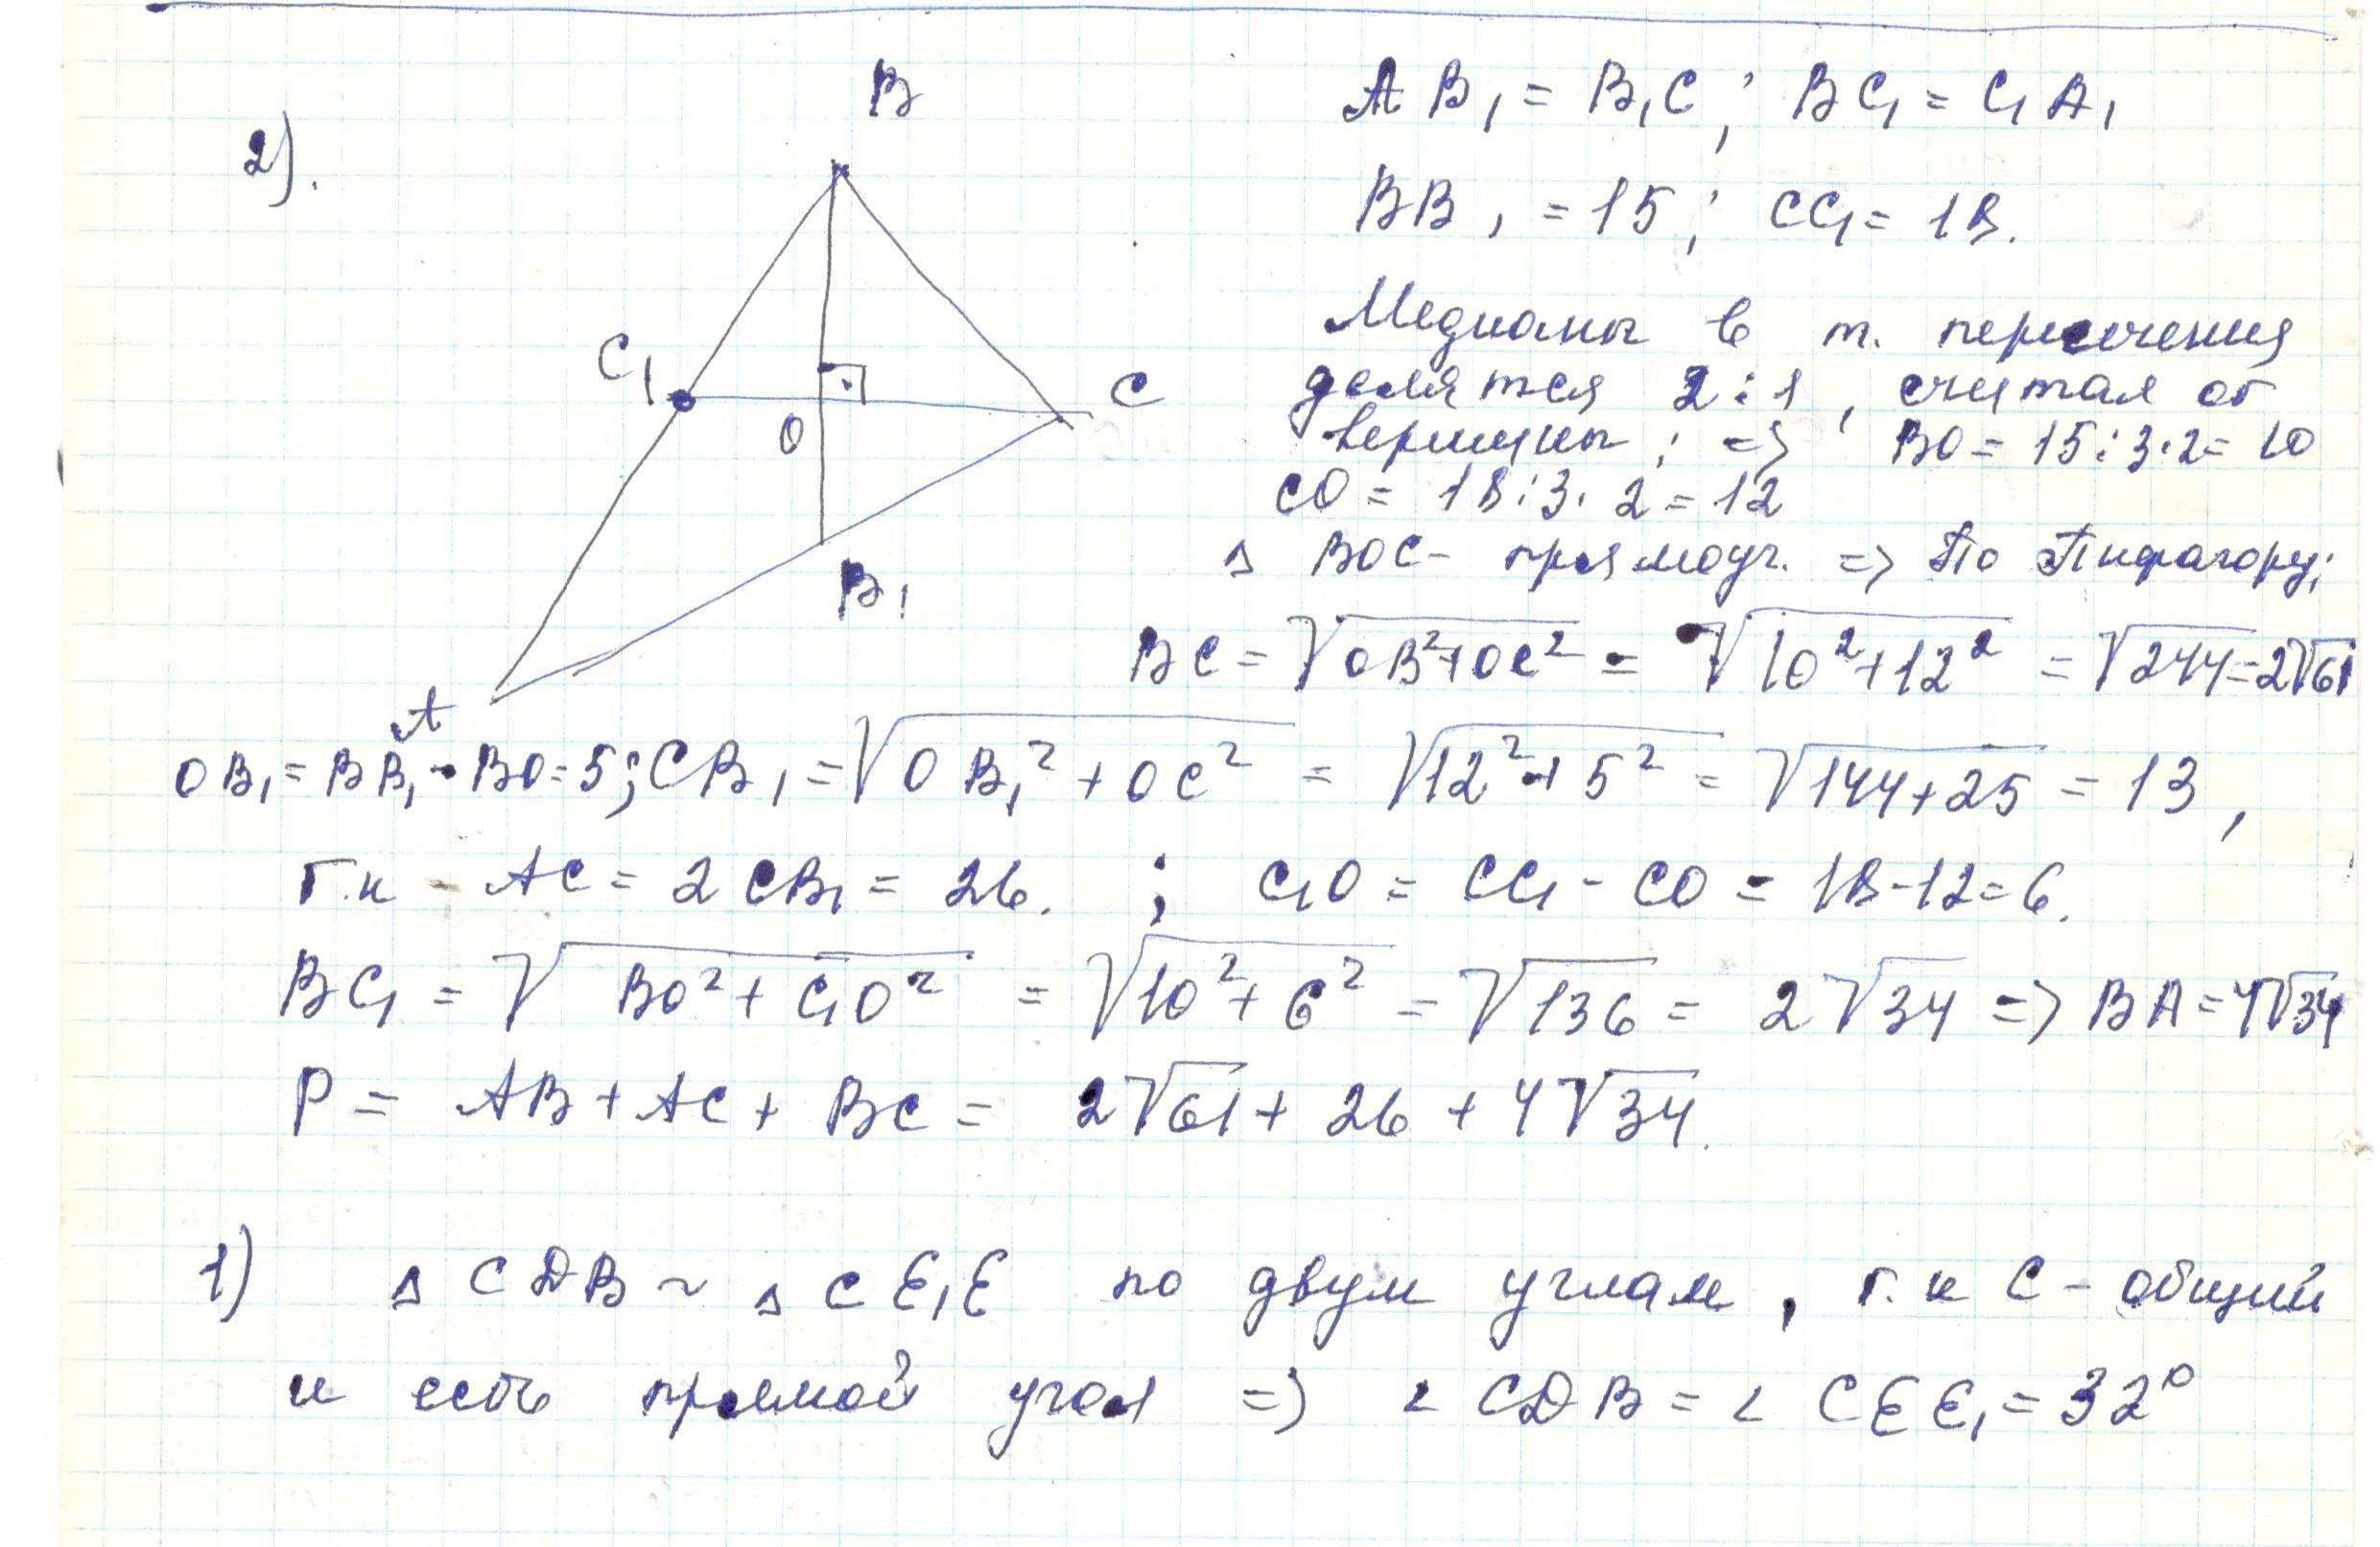 2).
B
C₁
O
C
B₁
A
AB₁ = B₁C ; BC₁ = C₁A,
BB₁ = 15 ; CC₁ = 18.
Медианы в т. пересечения
делятся 2:1, считая от
вершины ; => BO = 15:3·2 = 10
CO = 18:3·2 = 12
△ BOC - прямоуг. => По Пифагору;
BC = √OB²+OC² = √10²+12² = √244 = 2√61
OB₁ = BB₁ - BO = 5 ; CB₁ = √OB₁² + OC² = √12² + 5² = √144+25 = 13,
т.к - AC = 2CB₁ = 26. ; C₁O = CC₁ - CO = 18-12=6.
BC₁ = √BO² + C₁O² = √10² + 6² = √136 = 2√34 => BA = 4√34
P = AB + AC + BC = 2√61 + 26 + 4√34.
1) △ CDB ~ △ CE₁E по двум углам, т.к C - общий
и есть прямой угол => ∠ CDB = ∠ CEE₁ = 32°